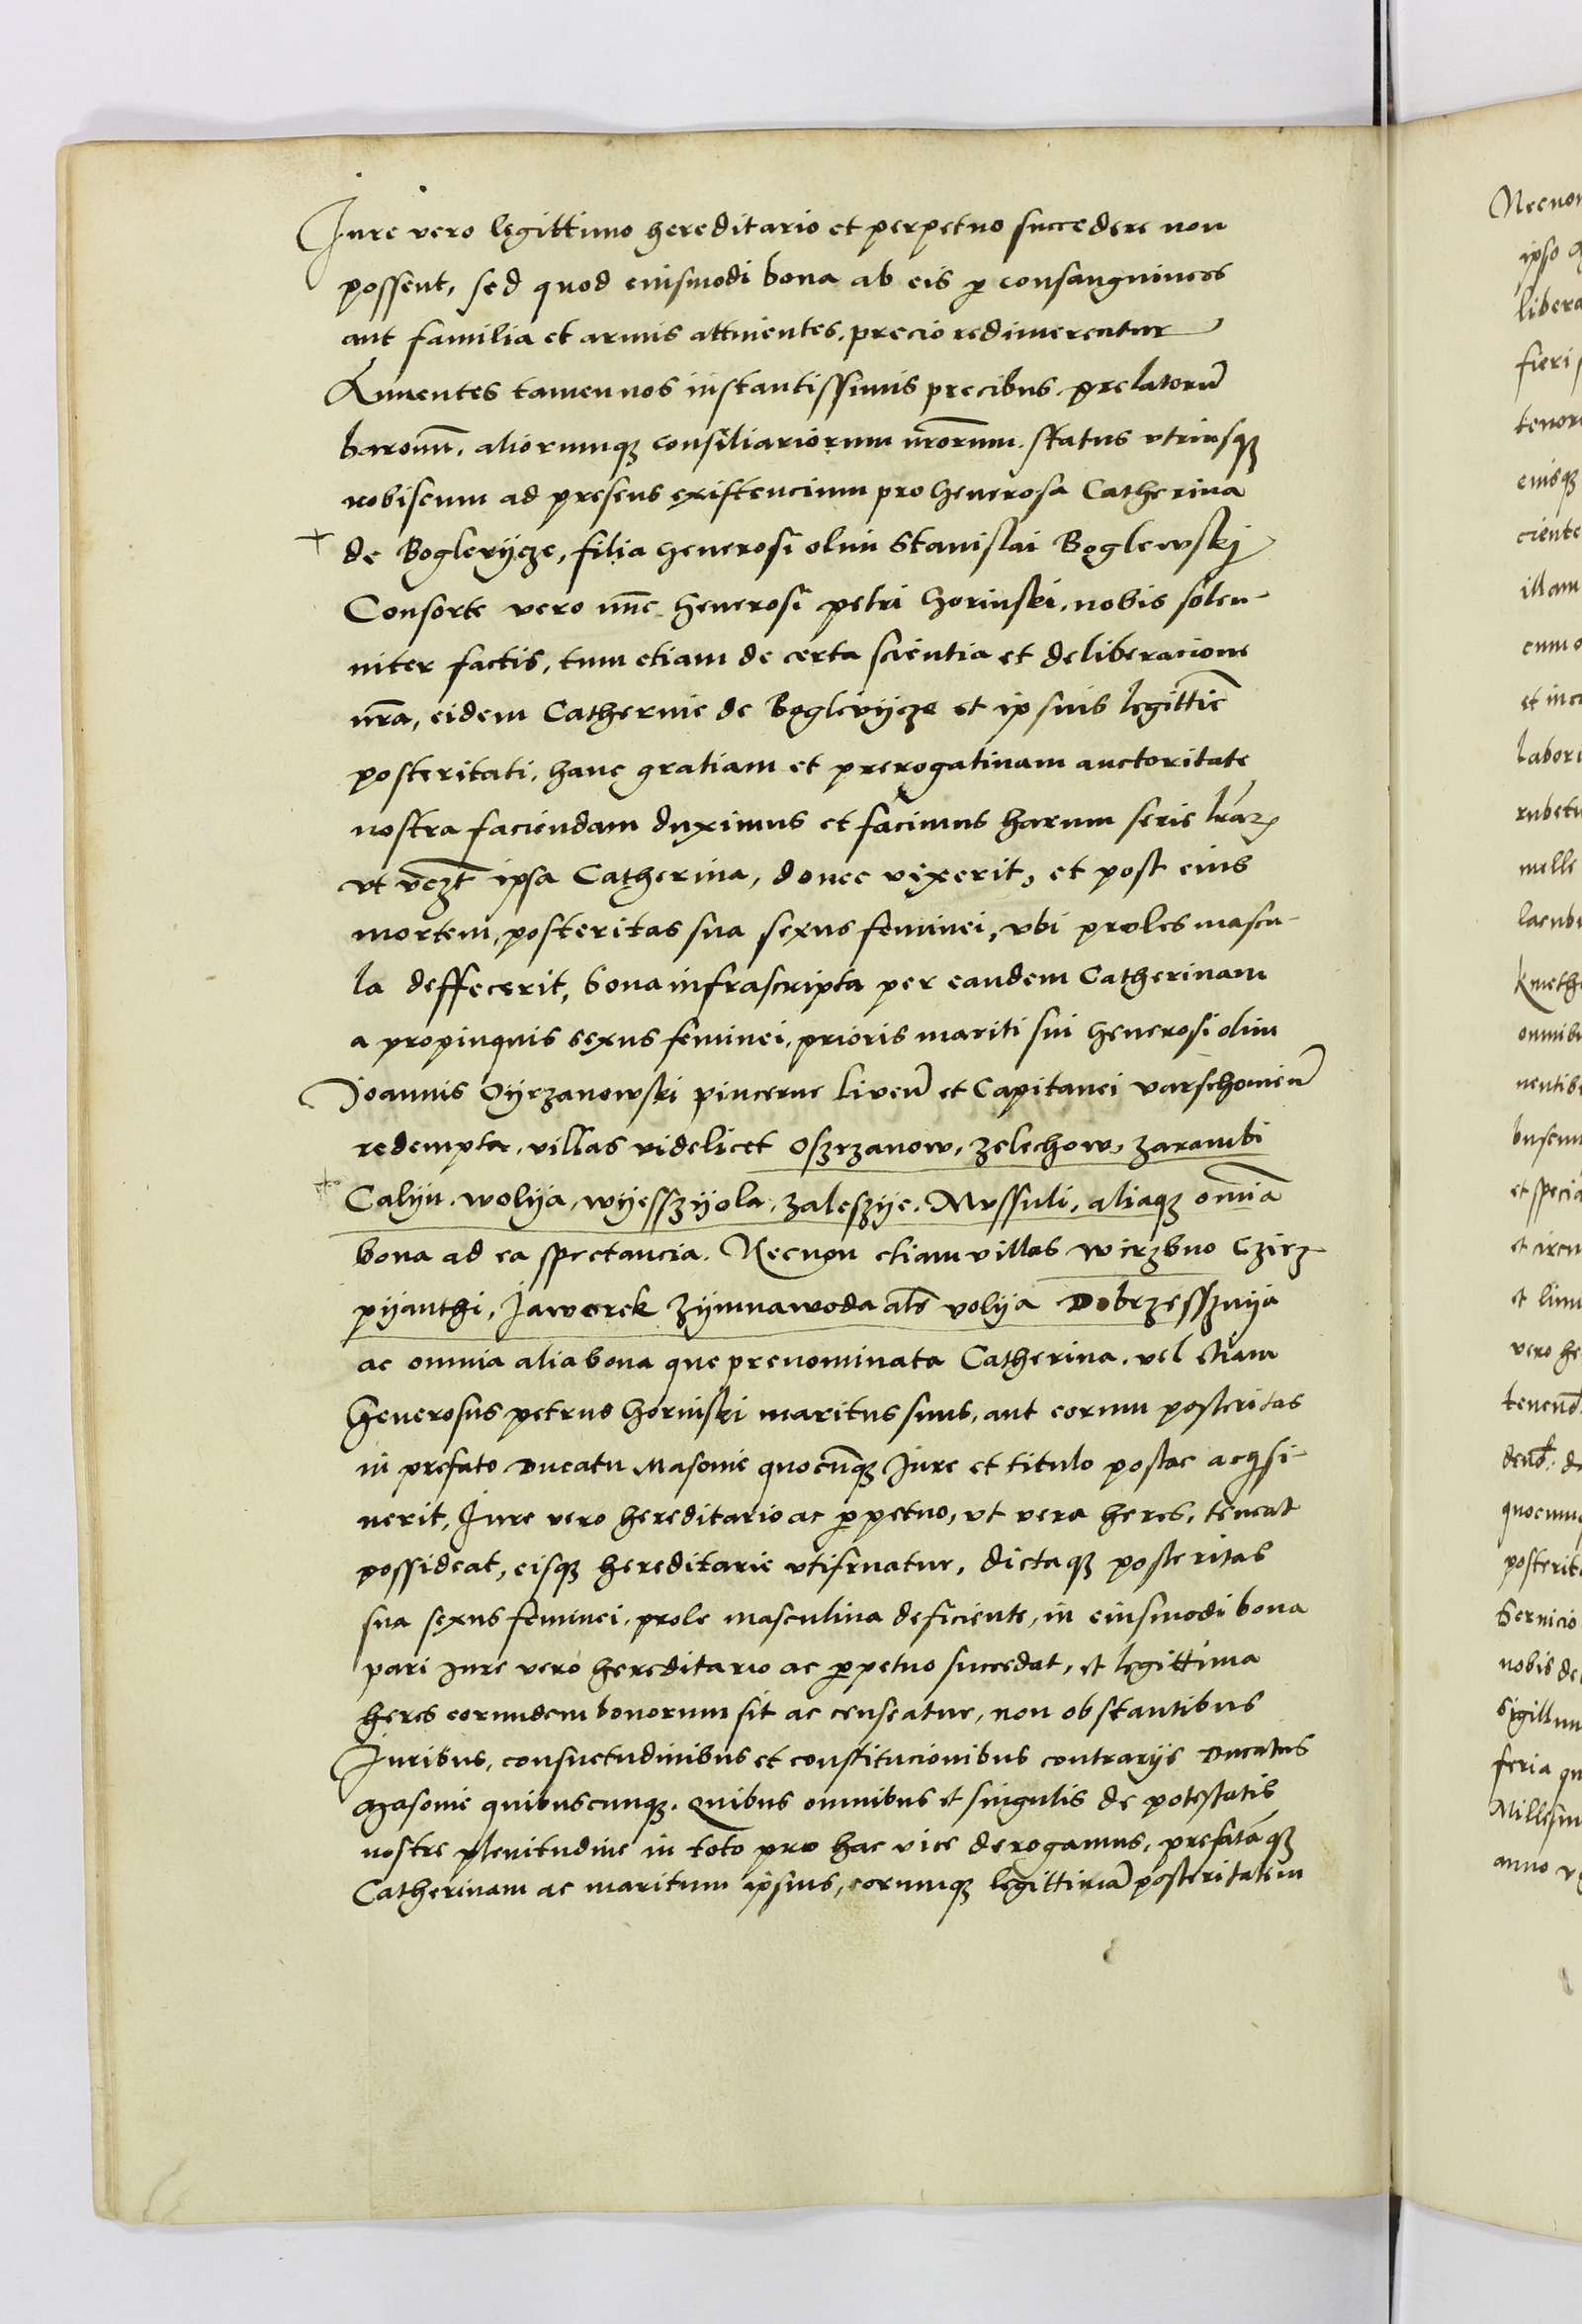 Jure vero legittimo hereditario et perpetuo succedere non
possent, sed quod eiusmodi bona ab eis p consanguineos
aut familia et armis attinentes, precio redimerentur
Annuentes tamen nos instantissimis precibus prelatorũ
baronũ, aliorumq; consiliariorum nr̃orum, status vtriusq;
nobiscum ad presens existencium pro Generosa Catherina
+ de Boglevijcze, filia Generosi olim Stanislai Boglewskj
Consorte vero nũc Generosi petri Gorinski, nobis solen-
niter factis, tum etiam de certa scientia et deliberacione
nr̃a, eidem Catherine de Boglevijcze et ip suis legittie
posteritati, hanc gratiam et prerogatiuam auctoritate
nostra faciendam duximus et facimus harum serie lr̃arz
vt vczt ipsa Catherina, donec vixerit, et post eius
mortem, posteritas sua sexus feminei, vbi proles mascu-
la deffecerit, bona infrascripta per eandem Catherinam
a propinquis sexus feminei, prioris mariti sui Generosi olim
Joannis Oijrzanowski pincerne Liven̄ et Capitanei varschouien̄
redempta, villas videlicet Oszrzanow, Zelechow, Zarambi
+ Calijn, wolija, wijesszijola, Zaleszije, Mussuli, aliaq; omīa
bona ad ea spectancia. Necnon etiam villas wirzbno Czirz-
pijanthi, Jaworek Zijmnawoda als̄ volija Dobrzessznija
ac omnia alia bona que prenominata Catherina, vel etiam
Generosus petrus Gorinski maritus suus, aut eorum posteritas
in prefato Ducatu Masouie quocũq; Jure et titulo postac acqsi-
uerit, Jure vero hereditario ac ppetuo, vt vera heres, teneat
possideat, eisq; hereditarie vtifruatur, dictaq; posteritas
sua sexus feminei, prole masculina deficiente, in eiusmodi bona
pari Jure vero hereditario ac ppetuo succedat, et legittima
heres eorundem bonorum sit ac censeatur, non obstantibus
Juribus, consuetudinibus et constitucionibus contrarijs Ducatus
Masouie quibuscunq;. Quibus omnibus et singulis de potestatis
nostre plenitudine in toto pro hac vice derogamus, prefatāq;
Catherinam ac maritum ipsius, eorumq; legittimā posteritatem